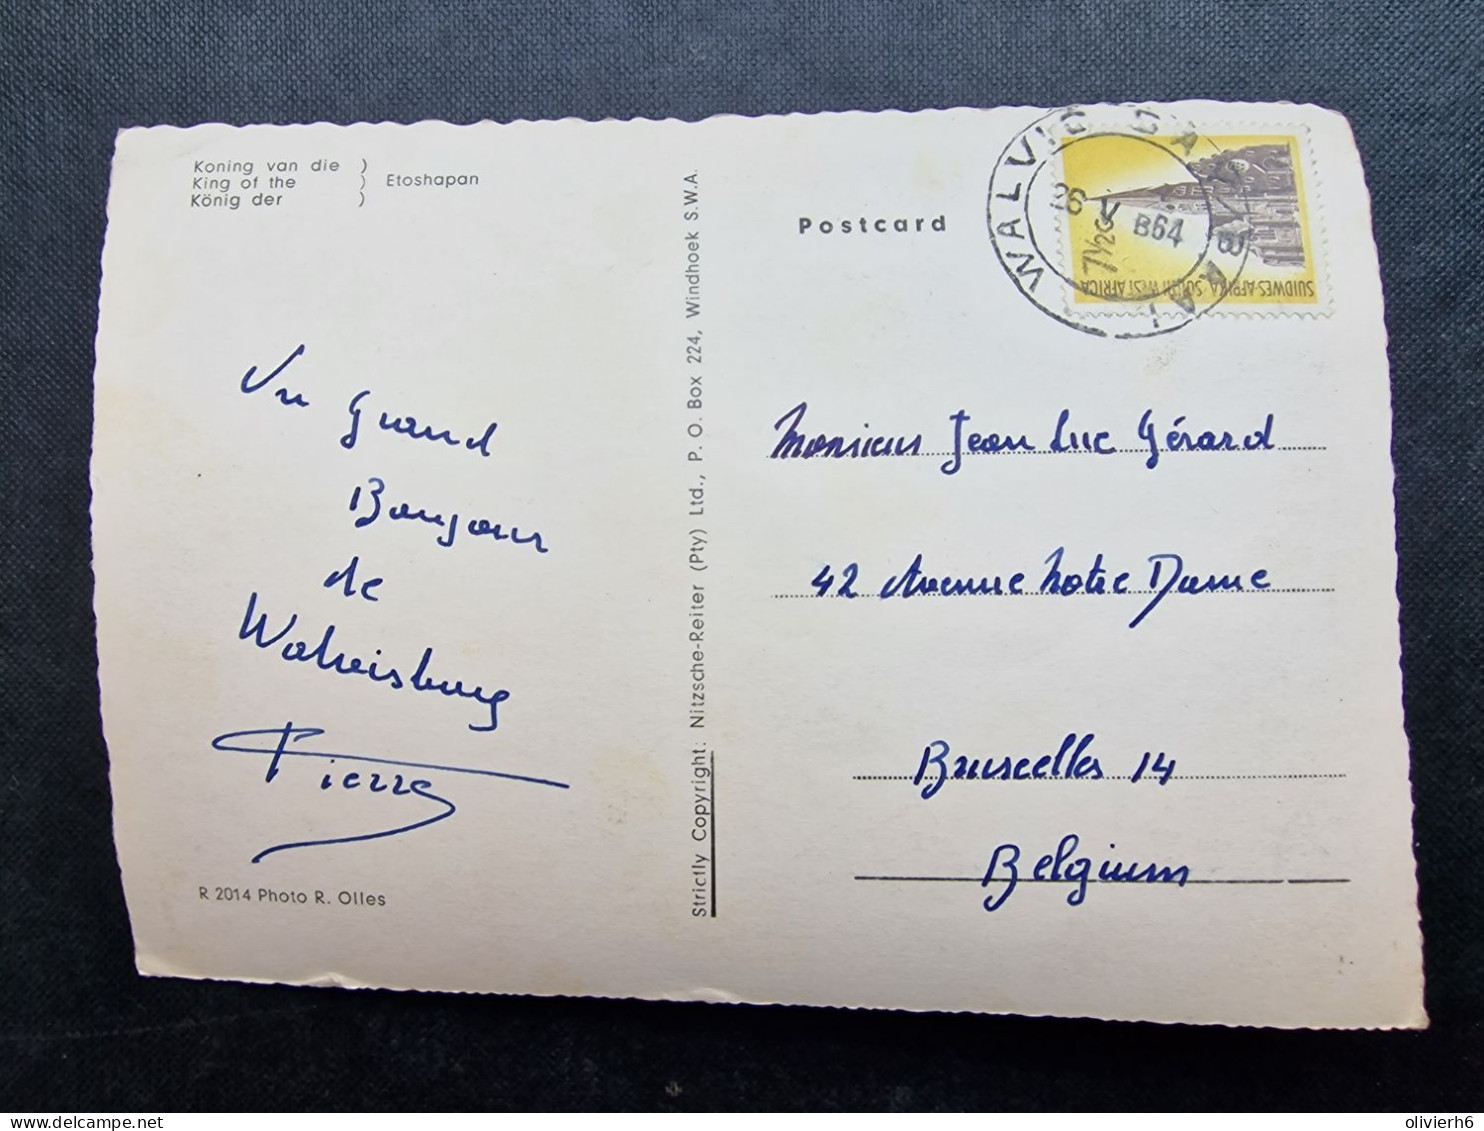 Koning van die )
King of the ) Etoshapan
König der )
Un Grand
Bonjour
de
Walvisburg
Pierre
R 2014 Photo R. Olles
Strictly Copyright: Nitzsche-Reiter (Pty) Ltd., P. O. Box 224, Windhoek S.W.A.
Postcard
WALVIS BAY
WALVISBAAI
26 V B64
7½C
SUIDWES-AFRIKA SOUTH WEST AFRICA
Monsieur Jean Luc Gérard
42 Avenue Notre Dame
Bruxelles 14
Belgium
olivierh6